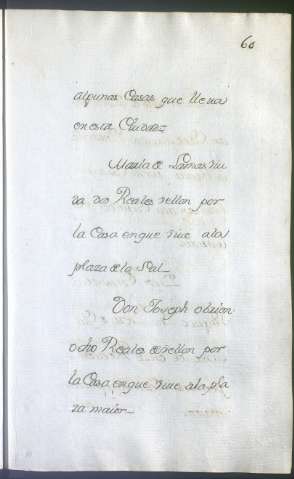 60
algunas Casas que lleua
en esta Ciudad
Maria de Lamas viu
da dos Reales vellon por
la Casa en que viue a la
plaza de la Sal
Don Joseph
ocho Reales de vellon por
la Casa en que viue a la pla
za maior